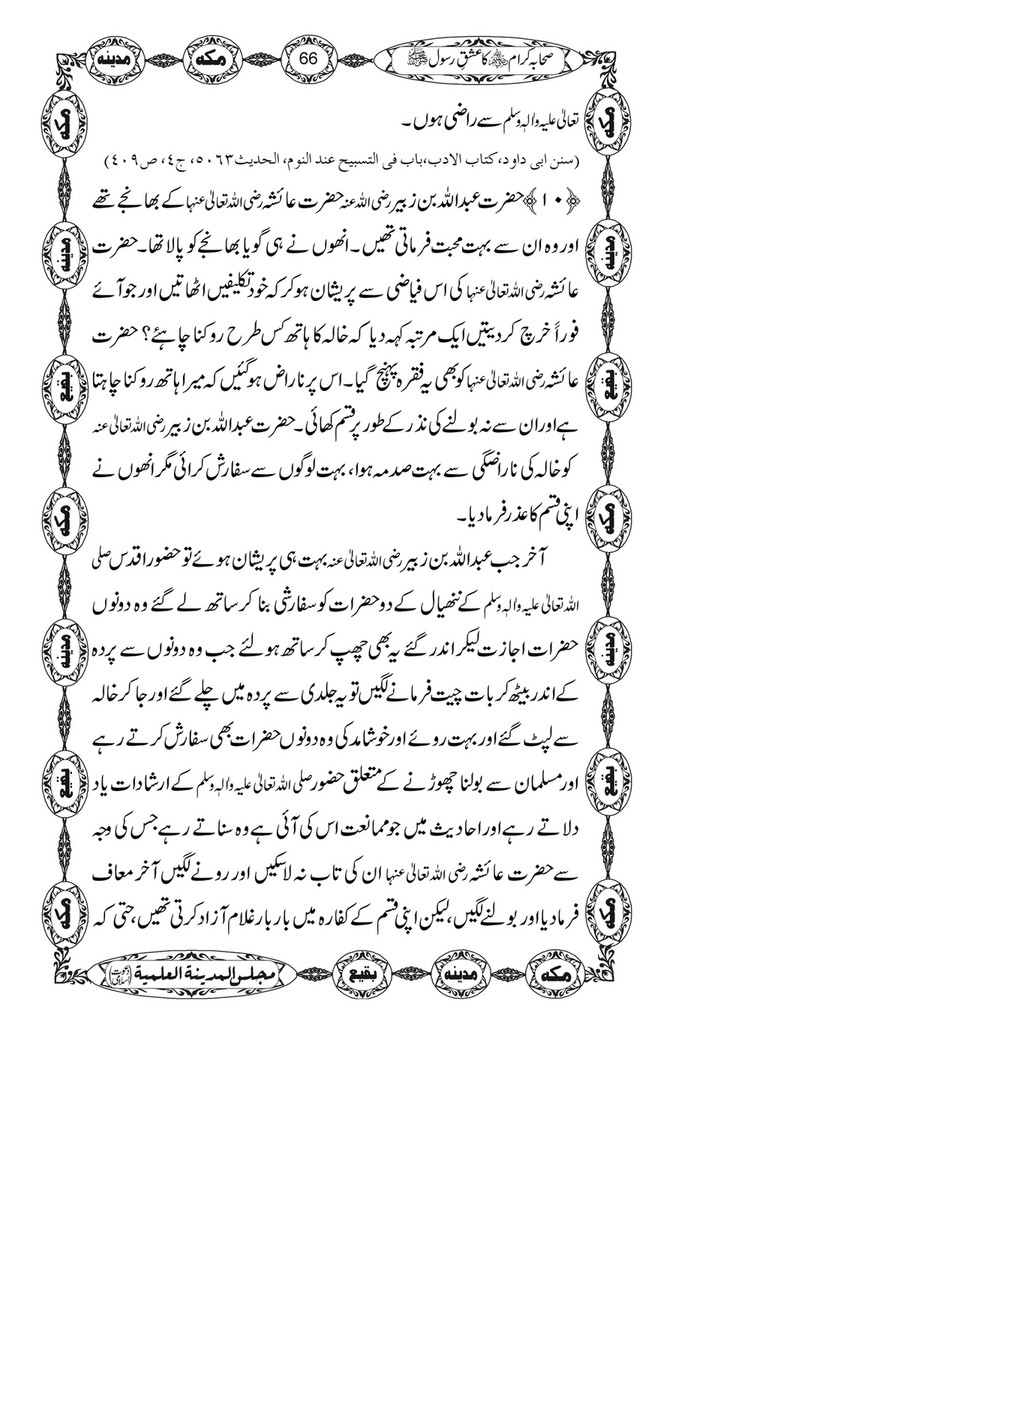 صحابہ کرام ﷺ کا عشق رسول ﷺ
66
مکہ
مدینہ
تعالیٰ علیہ والہٖ وسلم سے راضی ہوں۔
(سنن ابی داود،کتاب الادب،باب فی التسبیح عند النوم، الحدیث٥٠٦٣، ج٤، ص٤٠٩)
﴿۱۰﴾حضرت عبداللہ بن زبیر رضی اللہ عنہ حضرت عائشہ رضی اللہ تعالیٰ عنہا کے بھانجے تھے
اور وہ ان سے بہت محبت فرماتی تھیں۔ انھوں نے ہی گویا بھانجے کو پالا تھا۔ حضرت
عائشہ رضی اللہ تعالیٰ عنہا کی اس فیاضی سے پریشان ہوکر کہ خود تکلیفیں اٹھاتیں اور جو آئے
فوراً خرچ کردیتیں ایک مرتبہ کہہ دیا کہ خالہ کا ہاتھ کس طرح روکنا چاہئے؟ حضرت
عائشہ رضی اللہ تعالیٰ عنہا کو بھی یہ فقرہ پہنچ گیا۔ اس پر ناراض ہوگئیں کہ میرا ہاتھ روکنا چاہتا
ہے اور ان سے نہ بولنے کی نذر کے طور پر قسم کھائی۔ حضرت عبداللہ بن زبیر رضی اللہ تعالیٰ عنہ
کو خالہ کی ناراضگی سے بہت صدمہ ہوا، بہت لوگوں سے سفارش کرائی مگر انھوں نے
اپنی قسم کا عذر فرمادیا۔
آخر جب عبداللہ بن زبیر رضی اللہ تعالیٰ عنہ بہت ہی پریشان ہوئے تو حضور اقدس صلی
اللہ تعالیٰ علیہ والہٖ وسلم کے ننھیال کے دو حضرات کو سفارشی بنا کر ساتھ لے گئے وہ دونوں
حضرات اجازت لیکر اندر گئے یہ بھی چھپ کر ساتھ ہولئے جب وہ دونوں سے پردہ
کے اندر بیٹھ کر بات چیت فرمانے لگیں تو یہ جلدی سے پردہ میں چلے گئے اور جا کر خالہ
سے لپٹ گئے اور بہت روئے اور خوشامد کی وہ دونوں حضرات بھی سفارش کرتے رہے
اور مسلمان سے بولنا چھوڑنے کے متعلق حضور صلی اللہ تعالیٰ علیہ والہٖ وسلم کے ارشادات یاد
دلاتے رہے اور احادیث میں جو ممانعت اس کی آئی ہے وہ سناتے رہے جس کی وجہ
سے حضرت عائشہ رضی اللہ تعالیٰ عنہا ان کی تاب نہ لاسکیں اور رونے لگیں آخر معاف
فرمادیا اور بولنے لگیں، لیکن اپنی قسم کے کفارہ میں بار بار غلام آزاد کرتی تھیں، حتی کہ
مکہ
مدینہ
بقیع
مکہ
مدینہ
بقیع
مکہ
مکہ
مدینہ
بقیع
مکہ
مدینہ
بقیع
مکہ
مکہ
مدینہ
بقیع
مجلس المدینة العلمیة